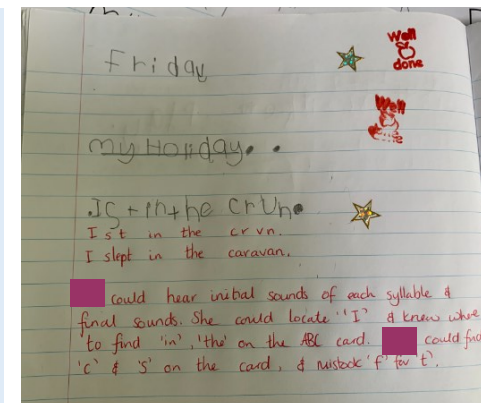 Friday
Well
done
Well
my Holiday..
IS t in the crun.
I s t in the cr vn.
I slept in the caravan.
could hear initial sounds of each syllable &
final sounds. She could locate 'I' & knew where
to find 'in', 'the' on the ABC card. could find
'c' & 's' on the card, & mistook 'f' for 't'.